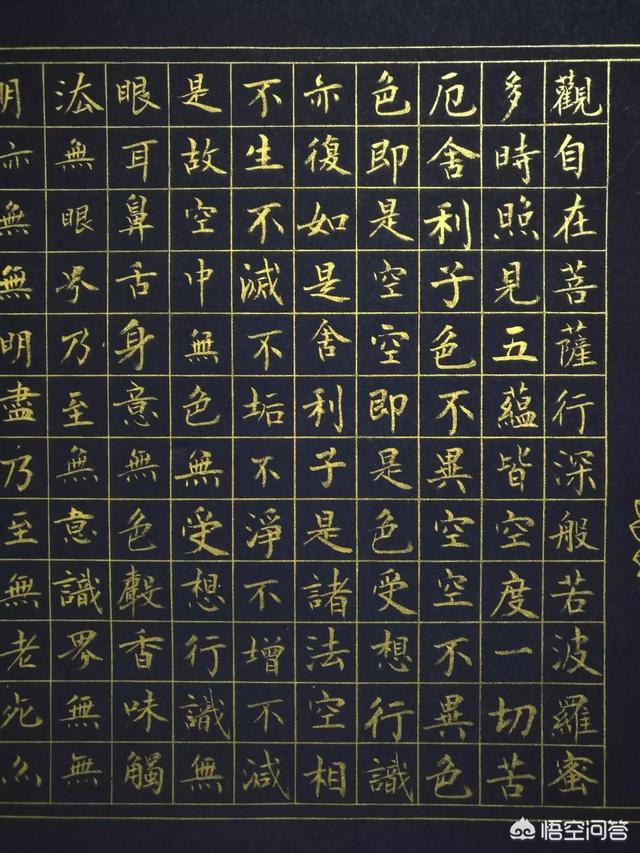 觀自在菩薩行深般若波羅蜜
多時照見五蘊皆空度一切苦
厄舍利子色不異空空不異色
色即是空空即是色受想行識
亦復如是舍利子是諸法空相
不生不滅不垢不淨不增不減
是故空中無色無受想行識無
眼耳鼻舌身意無色聲香味觸
法無眼界乃至無意識界無無
明亦無無明盡乃至無老死亦
悟空问答